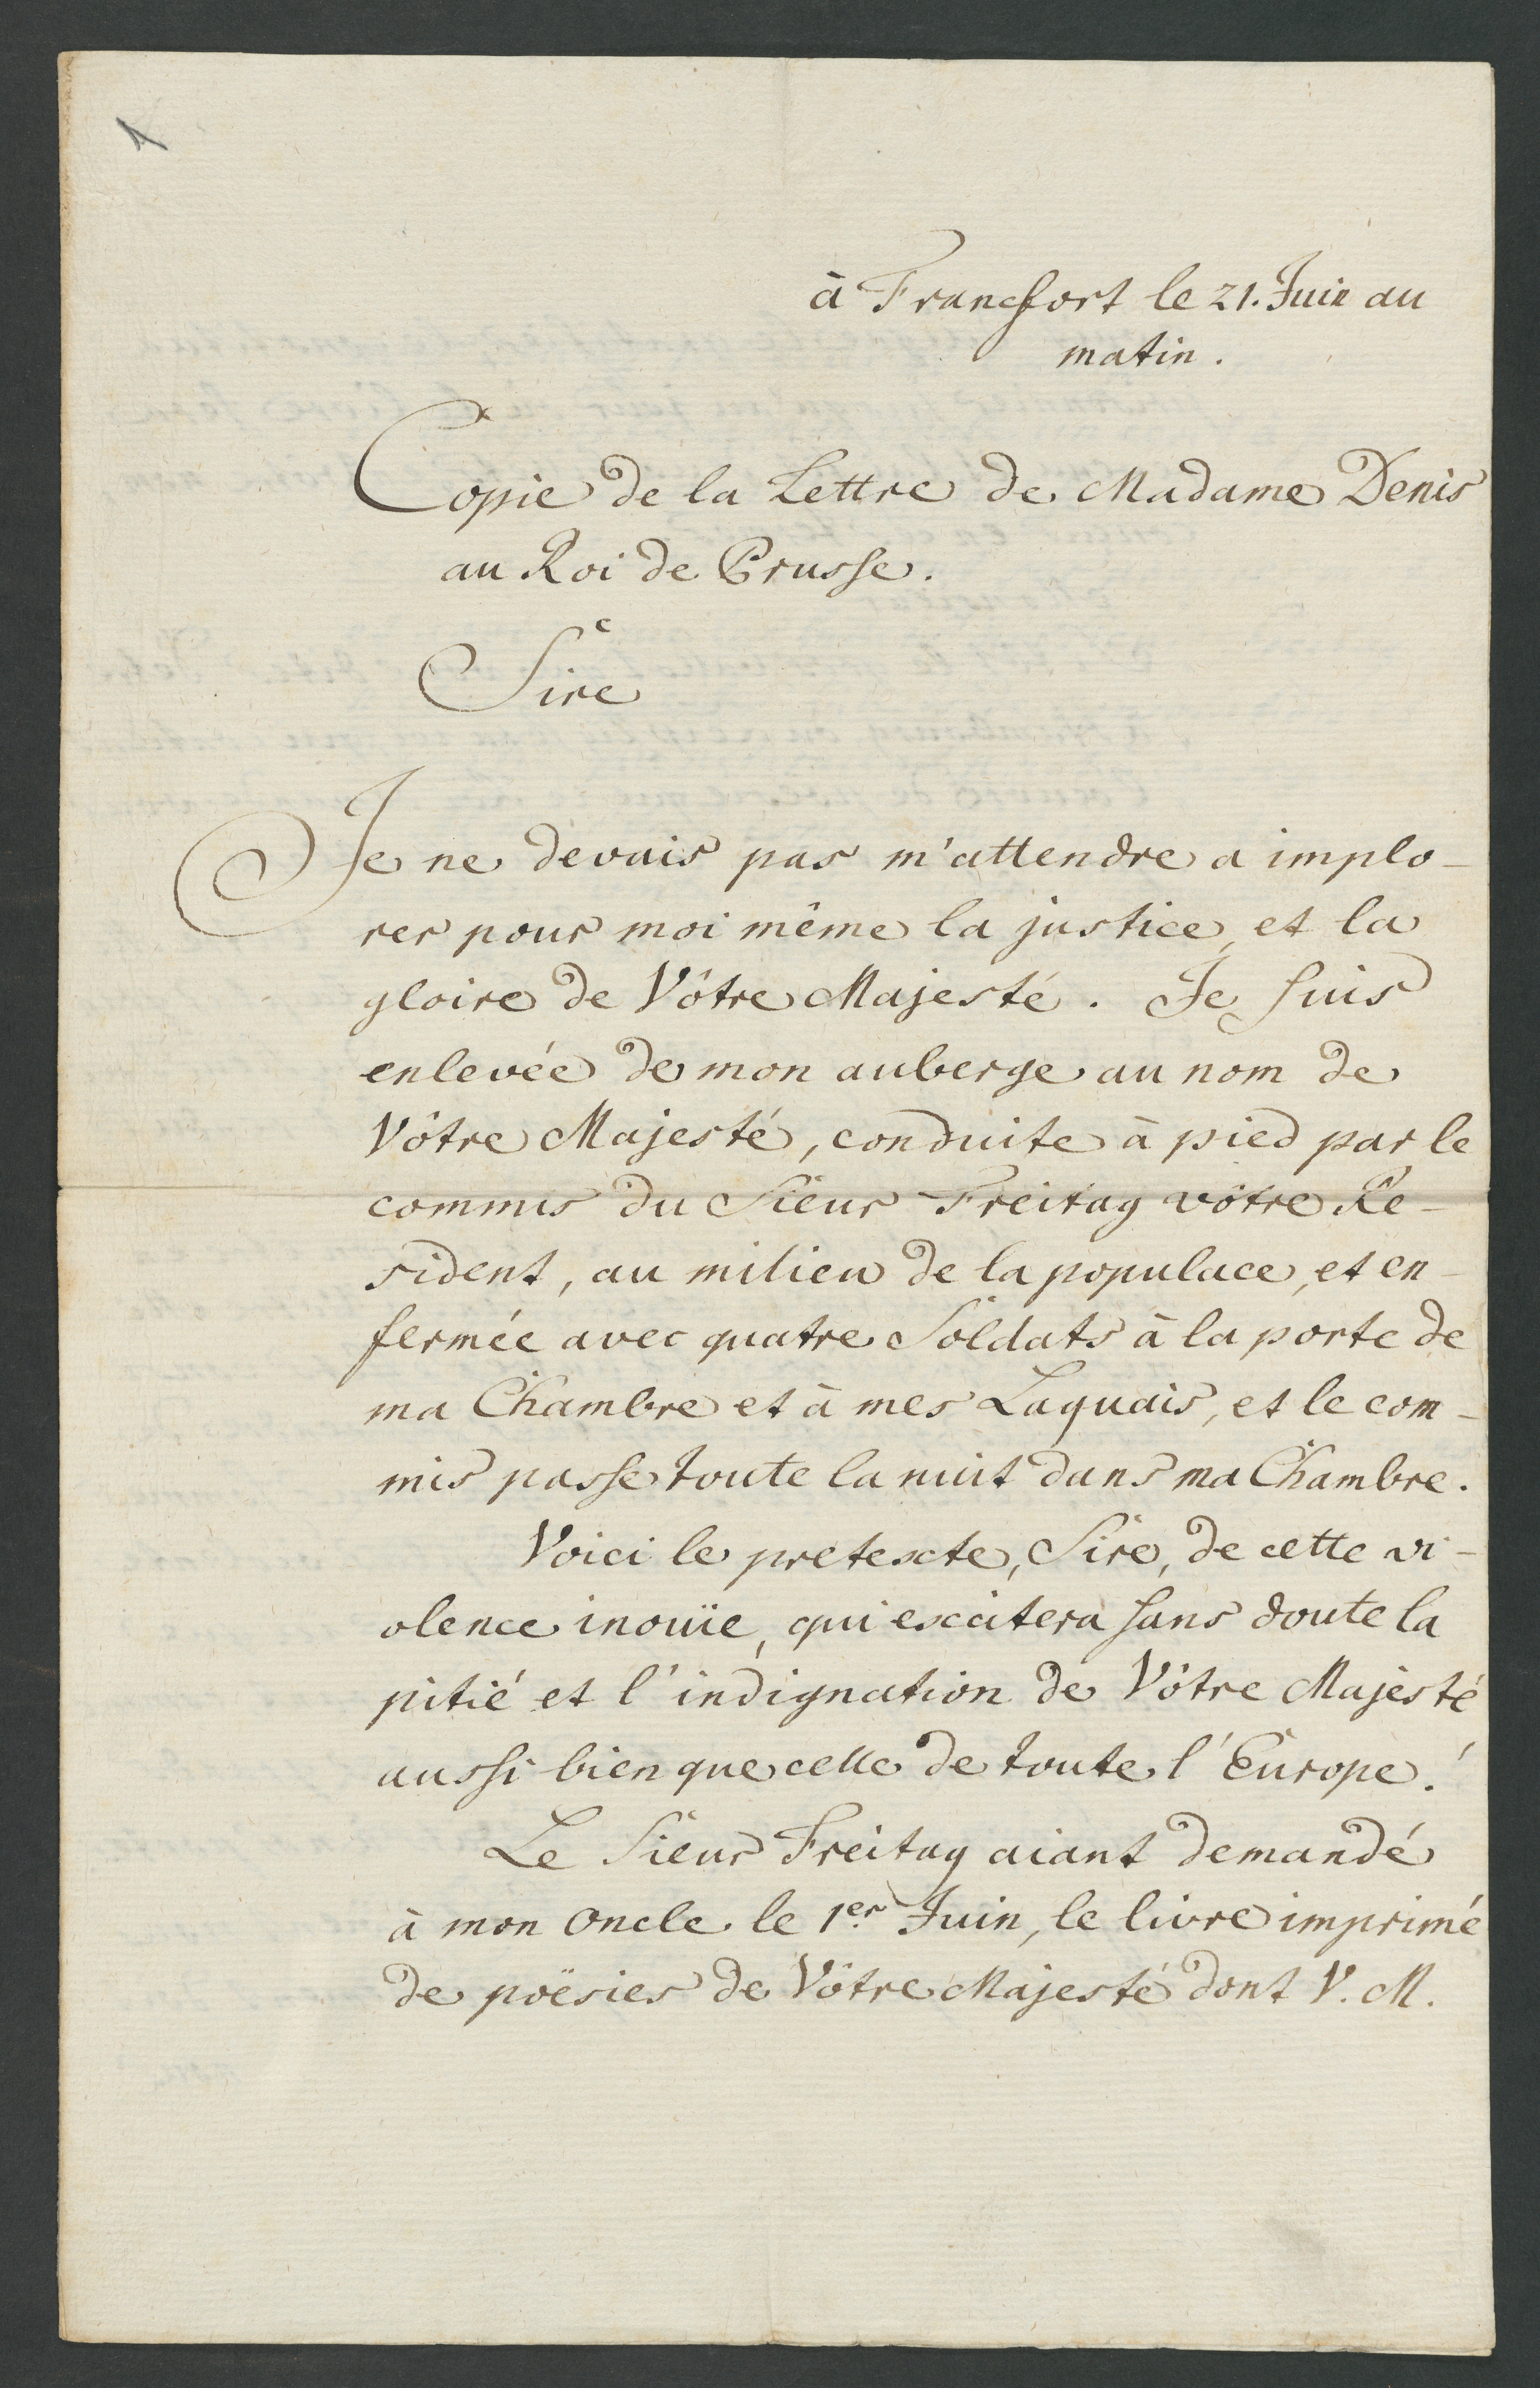 1
à Francfort le 21. Juin au
matin.
Copie de la Lettre de Madame Denis
au Roi de Prusse.
Sire
Je ne devais pas m'attendre a implo-
rer pour moi même la justice, et la
gloire de Vôtre Majesté. Je suis
enlevée de mon auberge au nom de
Vôtre Majesté, conduite à pied par le
commis du Sieur Freitag vôtre Ré-
sident, au milieu de la populace, et en-
fermée avec quatre Soldats à la porte de
ma Chambre et à mes Laquais, et le com-
mis passe toute la nuit dans ma Chambre.
Voici le pretexte, Sire, de cette vi-
olence inouïe, qui excitera sans doute la
pitié et l'indignation de Vôtre Majesté
aussi bien que celle de toute l'Europe!
Le Sieur Freitag aiant demandé
à mon Oncle le 1.er Juin, le livre imprimé
de poësies de Vôtre Majesté dont V. M.